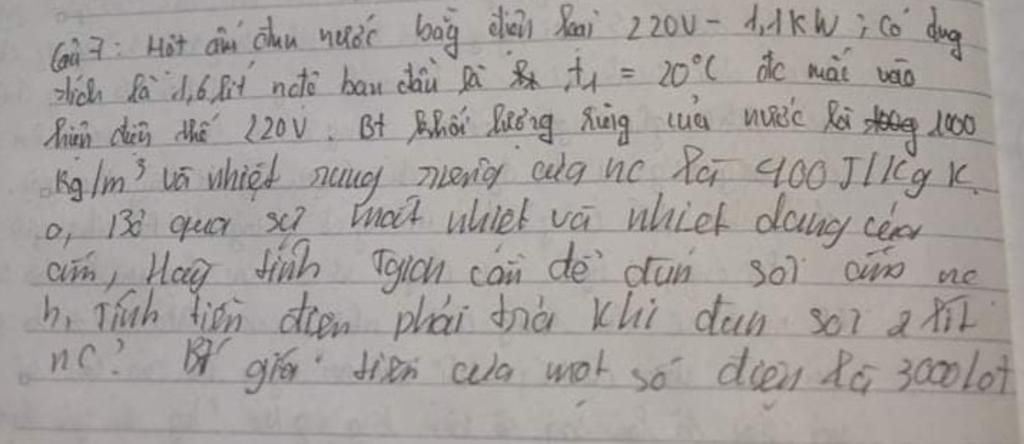 Câu 7: Một ấm đun nước bằg điện loại 220V - 1,1KW; Có dung
tích là 1,6 lít nđộ ban đầu là t1 = 20°C đc mắc vào
hiệu điện thế 220V. Bt khối lượng riêng của nước là 1000
Kg/m³ và nhiệt dung riêng của nc là 400 J/Kg K.
a, Bỏ qua sự mất nhiệt và nhiệt dung của
ấm, Hãy tính Tgian cần để đun sôi ấm nc
b, Tính tiền điện phải trả khi đun sôi 2 lít
nc? Bt giá tiền của một số điện là 3000